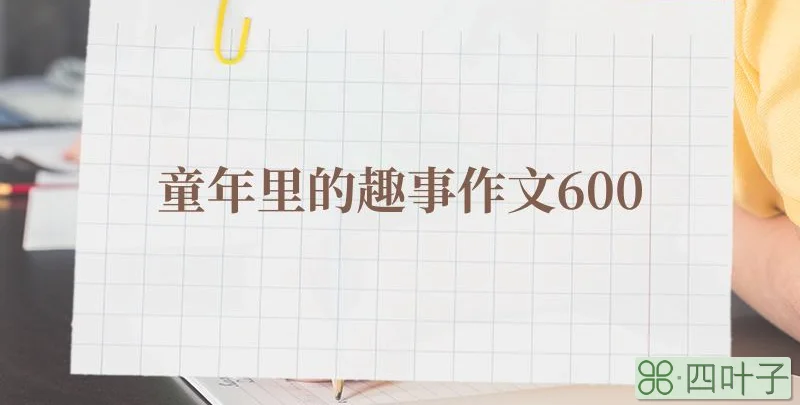 童年里的趣事作文600
四叶子